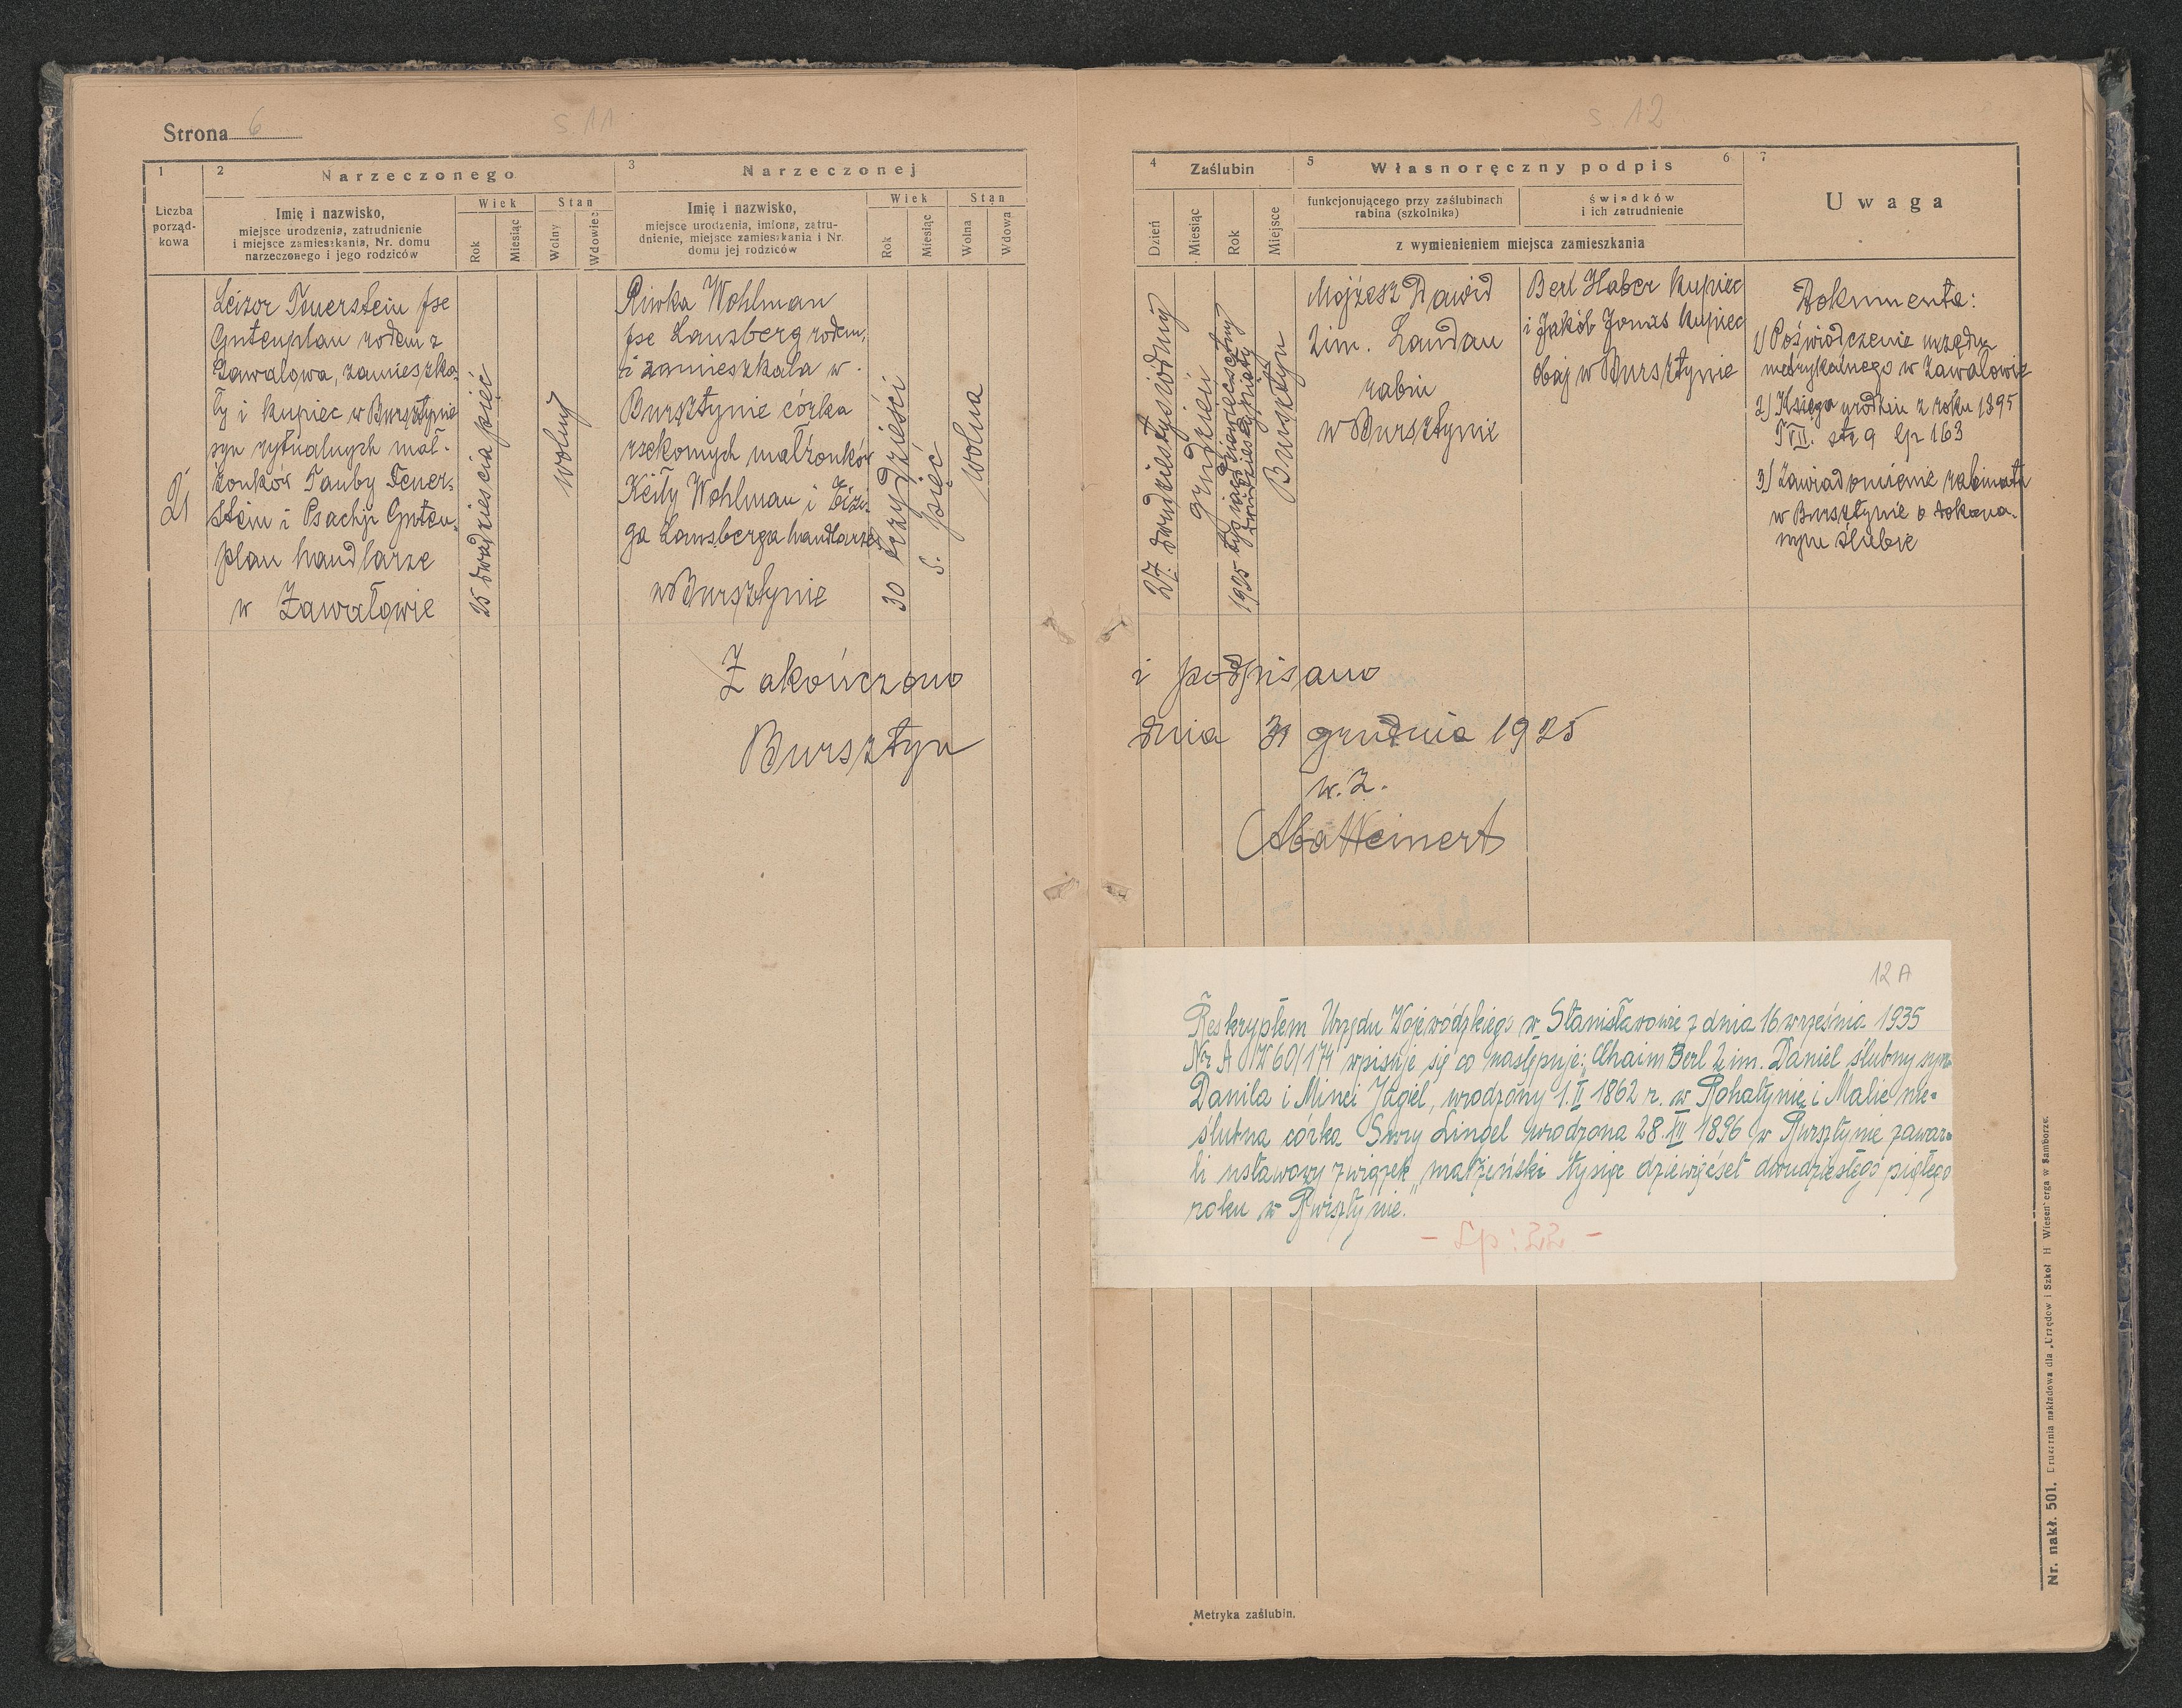 Strona 6
s. 11
1
2
Narzeczonego
3
Narzeczonej
Liczba
porząd-
kowa
Imię i nazwisko,
miejsce urodzenia, zatrudnienie
i miejsce zamieszkania, Nr. domu
narzeczonego i jego rodziców
Wiek
Stan
Rok
Miesiąc
Wolny
Wdowiec
Imię i nazwisko,
miejsce urodzenia, imiona, zatru-
dnienie, miejsce zamieszkania i Nr.
domu jej rodziców
Wiek
Stan
Rok
Miesiąc
Wolna
Wdowa
21
Leizor Feuerstein fse
Gutenplan rodem z
Zawałowa, zamieszka-
ły i kupiec w Bursztynie
syn rytualnych mał-
żonków Tauby Feuer-
stein i Psachji Guten-
plan handlarze
w Zawałowie
25 dwadzieścia pięć
wolny
Riwka Wohlman
fse Lansberg rodem
i zamieszkała w
Bursztynie córka
rzekomych małżonków
Keily Wohlman i
ga Lansberga handlarze
w Bursztynie
30 trzydzieści
5. pięć
wolna
Zakończono
Bursztyn
s. 12
4
Zaślubin
5
Własnoręczny podpis
6
7
Dzień
Miesiąc
Rok
Miejsce
funkcjonującego przy zaślubinach
rabina (szkolnika)
świadków
i ich zatrudnienie
z wymienieniem miejsca zamieszkania
Uwaga
27. dwudziesty siódmy
grudzień
1925 tysiąc dziewięćsetny
dwudziesty piąty
Bursztyn
Mojżesz Dawid
2 im. Landau
rabin
w Bursztynie
Berl Haber kupiec
i Jakób Jonas kupiec
obaj w Bursztynie
Dokumenta:
1) Poświadczenie urzędu
metrykalnego w Zawałowie
2) Księga urodzin z roku 1895
T VII. str 9 lp 163
3) Zawiadomienie rabinatu
w Bursztynie o dokona-
nym ślubie
i podpisano
dnia 31 grudnia 1925
w. z.
Aba Weinert
12 A
Reskryptem Urzędu Wojewódzkiego w Stanisławowie z dnia 16 września 1935
Nr A 60/174 wpisuje się co następuje: „Chaim Berl 2 im. Daniel ślubny syn
Danila i Minci Jagiel, urodzony 1. II 1862 r. w Rohatynie i Malie nie-
ślubna córka Sury Lindel urodzona 28. XII 1896 w Bursztynie zawar-
li ustawowy związek małżeński tysiąc dziewięćset dwudziestego piątego
roku w Bursztynie."
- Lp: 22 -
Metryka zaślubin.
Nr. nakł. 501. Drukarnia nakładowa dla „Urzędów i Szkół H Wiesenberga w Samborze.